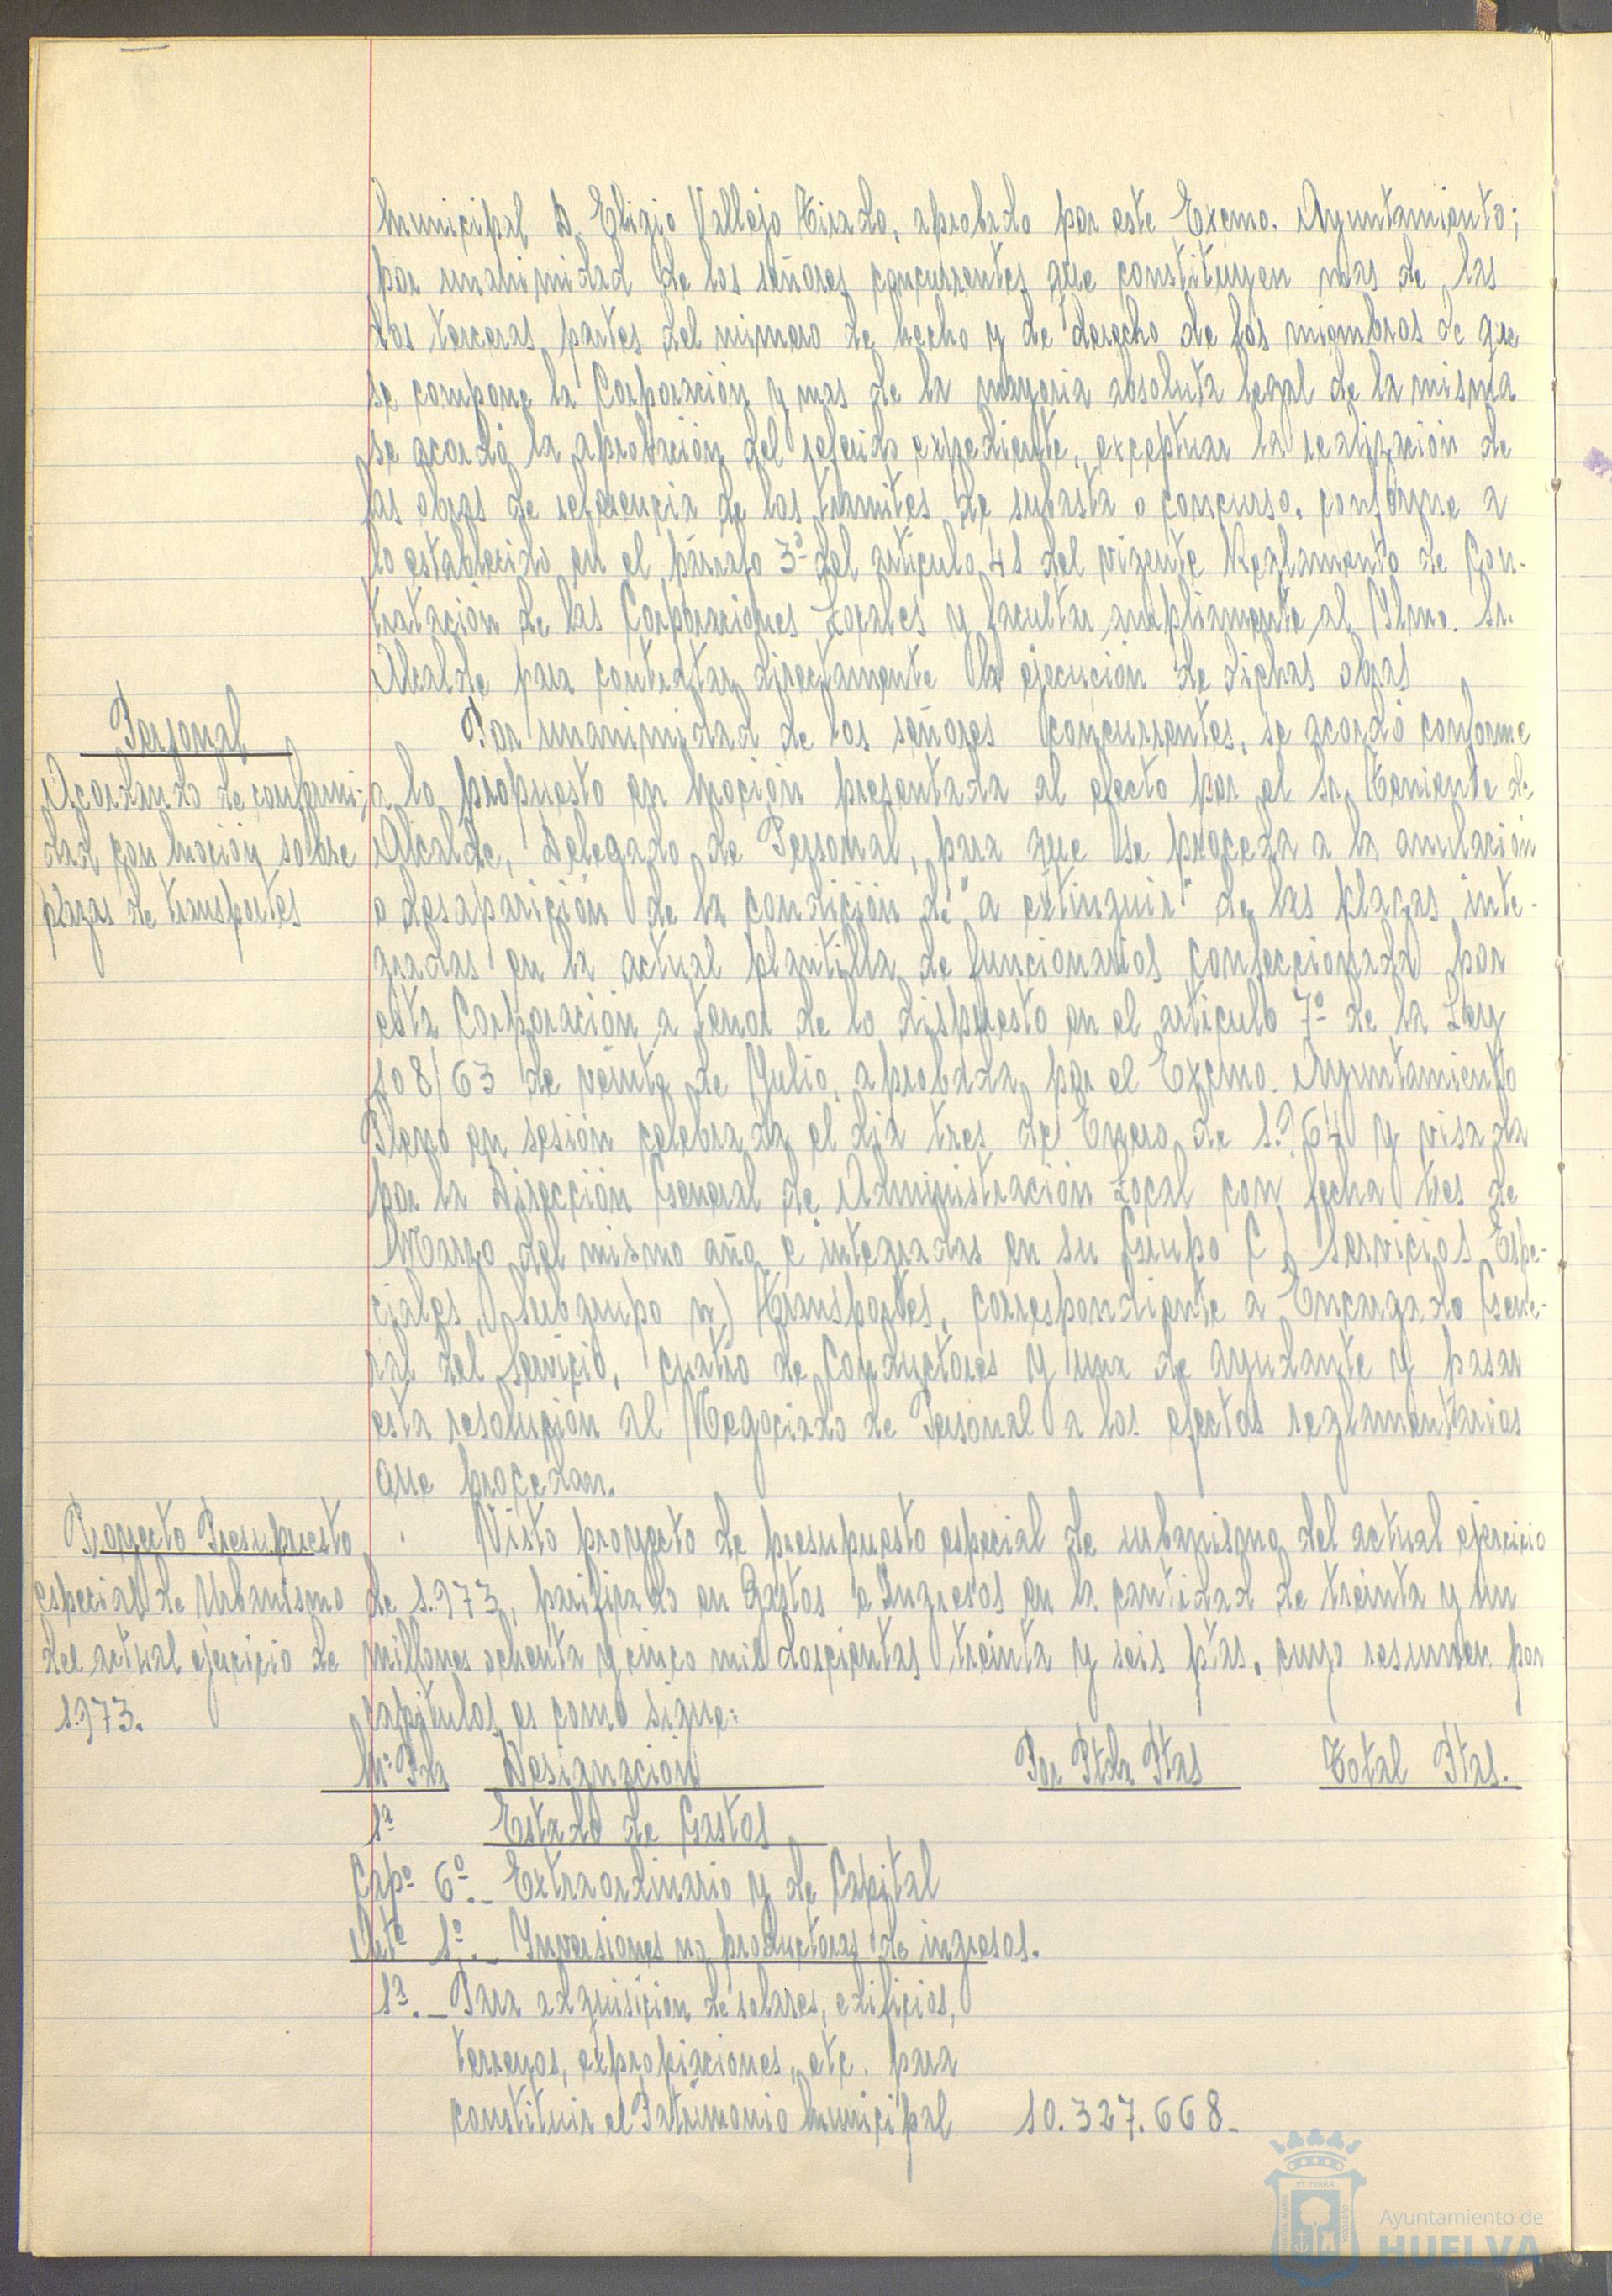 Municipal D. Eligio Vallejo Tirado, aprobado por este Excmo. Ayuntamiento;
por unanimidad de los señores concurrentes que constituyen mas de las
dos terceras partes del número de hecho y de derecho de los miembros de que
se compone la Corporación y mas de la mayoria absoluta legal de la misma
se acordó la aprobación del referido expediente, exceptuar la realización de
las obras de referencia de los tramites de subasta o concurso, conforme a
lo establecido en el párrafo 3º del artículo 41 del vigente Reglamento de Con-
tratación de las Corporaciones Locales y facultar ampliamente al Ylmo. Sr.
Alcalde para contratar directamente la ejecución de dichas obras
Personal
Acordando de conformi-
dad con moción sobre
plazas de transportes
Por unanimidad de los señores concurrentes, se acordó conforme
a lo propuesto en moción presentada al efecto por el Sr. Teniente de
Alcalde, Delegado de Personal, para que se proceda a la anulación
o desaparición de la condición de "a extinguir" de las plazas inte-
gradas en la actual plantilla de funcionarios confeccionada por
esta Corporación a tenor de lo dispuesto en el artículo 7º de la Ley
108/63 de veinte de Julio, aprobada por el Excmo. Ayuntamiento
Pleno en sesión celebrada el dia tres de Enero de 1.964 y visada
por la Dirección General de Administración Local con fecha tres de
Marzo del mismo año e integradas en su Grupo C) Servicios Espe-
ciales, Subgrupo n) Transportes, correspondiente a Encargado Gene-
ral del Servicio, cuatro de Conductores y una de ayudante y pasar
esta resolución al Negociado de Personal a los efectos reglamentarios
que procedan.
Proyecto Presupuesto
especial de Urbanismo
del actual ejercicio de
1.973.
Visto proyecto de presupuesto especial de urbanismo del actual ejercicio
de 1.973, parificado en Gastos e Ingresos en la cantidad de treinta y un
millones ochenta y cinco mil doscientas treinta y seis ptas, cuyo resumen por
capitulos es como sigue:
Nº Pda Designación Por Ptda Ptas Total Ptas.
1ª Estado de Gastos
Capº 6º.- Extraordinario y de Capital
Artº 1º.- Inversiones no productoras de ingresos.
1ª.- Para adquisición de solares, edificios,
terrenos, expropiaciones, etc. para
constituir el Patrimonio Municipal 10.327.668-
Ayuntamiento de
HUELVA